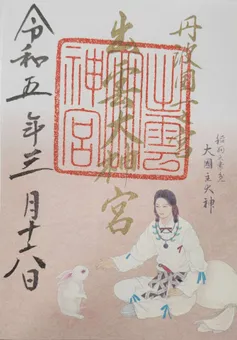 丹波國一之宮
出雲大神宮
出雲大神宮
令和五年三月十八日
大国主大神